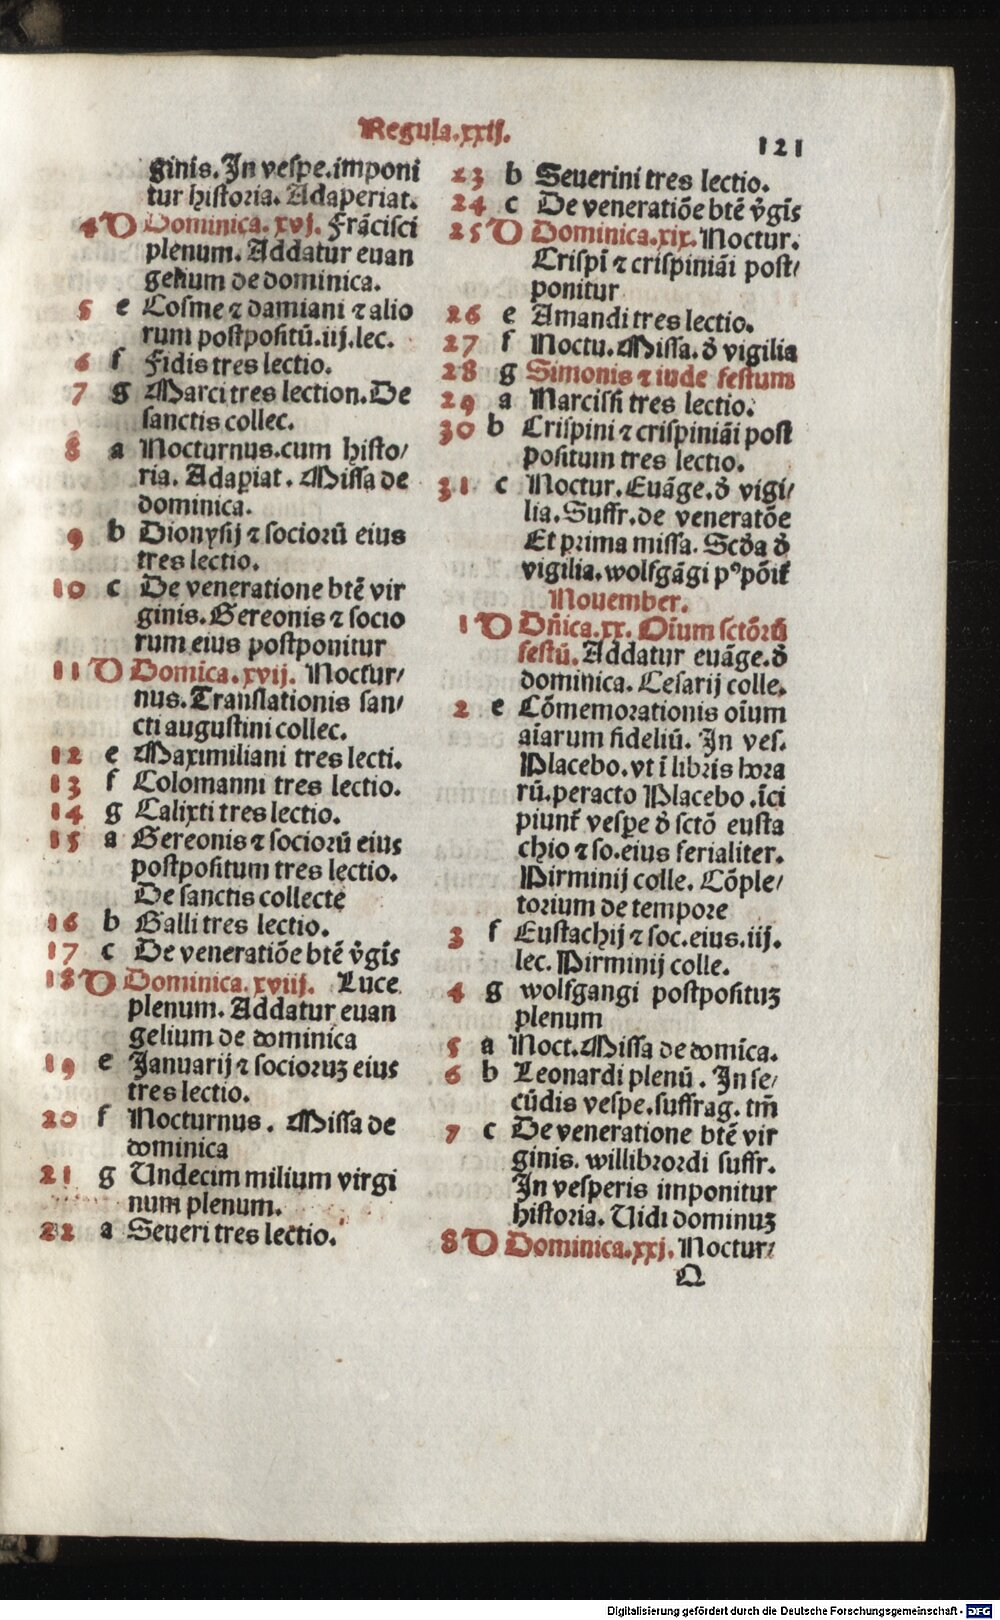 Regula.xxij.
121
ginis. In vespe.imponi
tur historia. Adaperiat.
4 D Dominica.xvj. Frācisci
plenum. Addatur euan
gelium de dominica.
5 e Cosme ⁊ damiani ⁊ alio
rum postpositū.iij.lec.
6 f Fidis tres lectio.
7 g Marci tres lection. De
sanctis collec.
8 a Nocturnus.cum histo/
ria. Adaꝑiat. Missa de
dominica.
9 b Dionysij ⁊ sociorū eius
tres lectio.
10 c De veneratione btē vir
ginis. Gereonis ⁊ socio
rum eius postponitur
11 D Domīca.xvij. Noctur/
nus. Translationis san/
cti augustini collec.
12 e Maximiliani tres lecti.
13 f Colomanni tres lectio.
14 g Calixti tres lectio.
15 a Gereonis ⁊ sociorū eius
postpositum tres lectio.
De sanctis collecte
16 b Galli tres lectio.
17 c De veneratiōe btē v̄gīs
18 D Dominica.xviij. Luce
plenum. Addatur euan
gelium de dominica
19 e Januarij ⁊ socioruꝫ eius
tres lectio.
20 f Nocturnus. Missa de
dominica
21 g Undecim milium virgi
num plenum.
22 a Seueri tres lectio.
23 b Seuerini tres lectio.
24 c De veneratiōe btē v̄gīs
25 D Dominica.xix. Noctur.
Crispī ⁊ crispiniāi post/
ponitur
26 e Amandi tres lectio.
27 f Noctu. Missa. đ vigilia
28 g Simonis ⁊ iude festum
29 a Narcissi tres lectio.
30 b Crispini ⁊ crispiniāi post
positum tres lectio.
31 c Noctur. Euāge. đ vigi/
lia. Suffr. de veneratōe
Et prima missa. Scđa đ
vigilia. wolfgāgi pꝰpōit̄
Nouember.
1 D Dn̄ica.xx. Oīum sctōrū
festū. Addatur euāge. đ
dominica. Cesarij colle.
2 e Cōmemorationis oīum
aīarum fideliū. In ves.
Placebo. vt ī libris hora
rū. peracto Placebo .īci
piunt̄ vespe đ sctō eusta
chio ⁊ so. eius ferialiter.
Pirminij colle. Cōple/
torium de tempore
3 f Eustachij ⁊ soc. eius. iij.
lec. Pirminij colle.
4 g wolfgangi postposituꝫ
plenum
5 a Noct. Missa de domīca.
6 b Leonardi plenū. In se/
cūdis vespe. suffrag. tm̄
7 c De veneratione btē vir
ginis. willibrordi suffr.
In vesperis imponitur
historia. Vidi dominuꝫ
8 D Dominica.xxj. Noctur/
Q
Digitalisierung gefördert durch die Deutsche Forschungsgemeinschaft - DFG